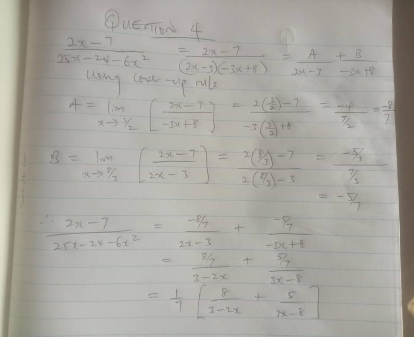 QUESTION 4
2x-7 / 25x-24-6x² = 2x-7 / (2x-3)(-3x+8) = A / 2x-3 + B / -3x+8
Using cover-up rule
A = lim x→3/2 [ 2x-7 / -3x+8 ] = 2(3/2)-7 / -3(3/2)+8 = -4 / 7/2 = -8/7
B = lim x→8/3 [ 2x-7 / 2x-3 ] = 2(8/3)-7 / 2(8/3)-3 = -5/3 / 7/3
= -5/7
∴ 2x-7 / 25x-24-6x² = -8/7 / 2x-3 + -5/7 / -3x+8
= 8/7 / 3-2x + 5/7 / 3x-8
= 1/7 [ 8 / 3-2x + 5 / 3x-8 ]